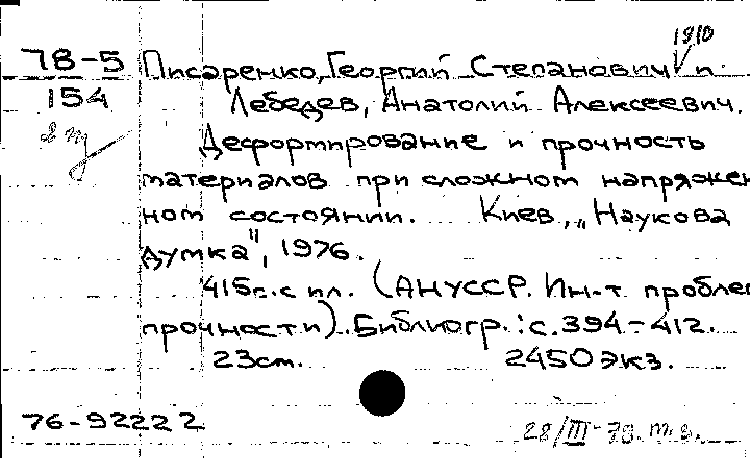 1910
78-5 Писаренко, Георгий Степанович и
154 Лебедев, Анатолий Алексеевич.
Деформирование и прочность
материалов при сложном напряжен
ном состоянии. Киев, „Наукова
думка", 1976.
415с. с ил. (АНУССР. Ин-т проблем
прочности). Библиогр.: с. 394-412.
23см. 2450 экз.
76-92222
28/III-78. т. в.